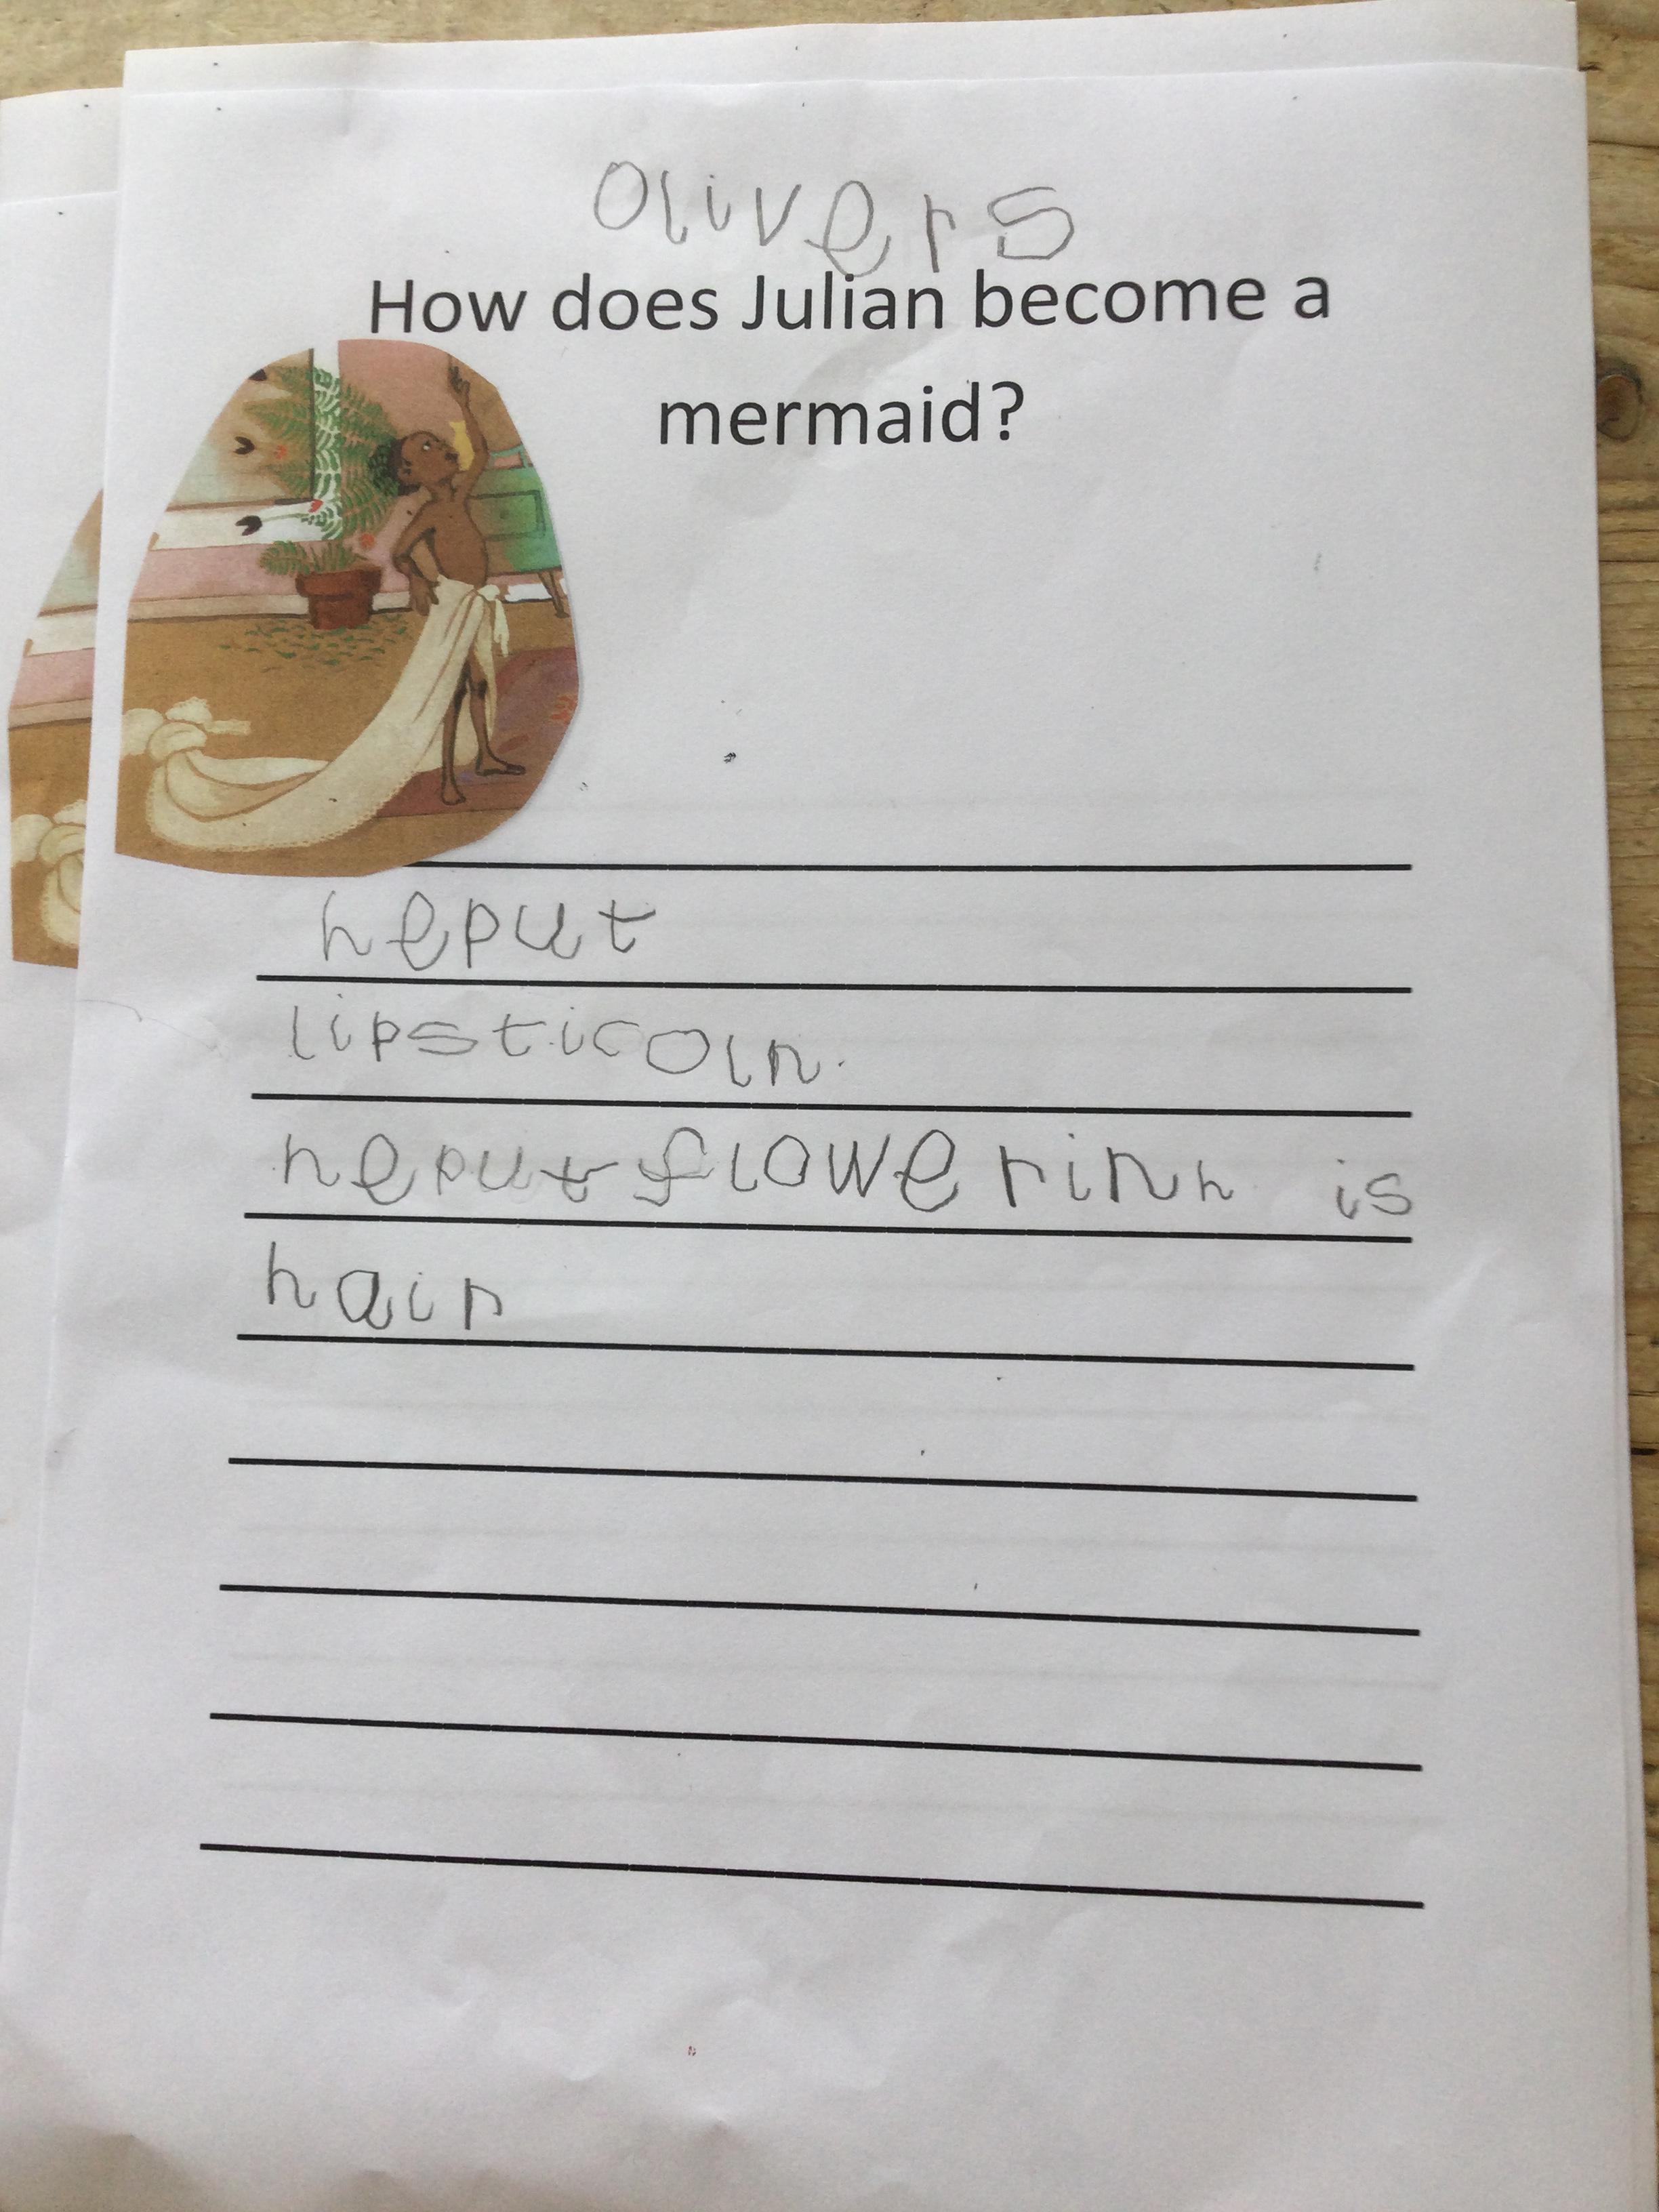 olivers
How does Julian become a
mermaid?
heput
lipsticoin.
heput flower inh is
hair